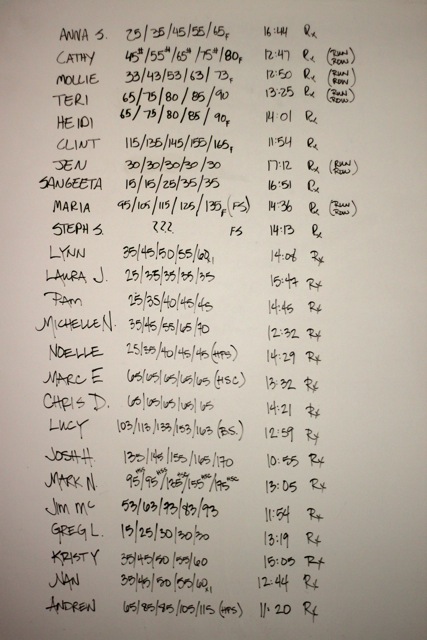 ANNA S. 25/35/45/55/65F 16:44 Rx
CATHY 45#/55#/65#/75#/80F 12:47 Rx (RUN ROW)
MOLLIE 33/43/53/63/73F 12:50 Rx (RUN ROW)
TERI 65/75/80/85/90 13:25 Rx (RUN ROW)
HEIDI 65/75/80/85/90F 14:01 Rx
CLINT 115/135/145/155/165F 11:54 Rx
JEN 30/30/30/30/30 17:12 Rx (RUN ROW)
SANGEETA 15/15/25/35/35 16:51 Rx
MARIA 95/105/115/125/135F (FS) 14:36 Rx (RUN ROW)
STEPH S. ??? FS 14:13 Rx
LYNN 35/45/50/55/60x1 14:08 Rx
LAURA J. 25/35/35/35/35 15:47 Rx
PAM 25/35/40/45/45 14:45 Rx
MICHELLE N. 35/45/55/65/70 12:32 Rx
NOELLE 25/35/40/45/45 (HPS) 14:29 Rx
MARC E 65/65/65/65/65 (HSC) 13:32 Rx
CHRIS D. 65/65/65/65/65 14:21 Rx
LUCY 103/113/133/153/163 (B.S.) 12:59 Rx
JOSH H. 135/145/155/165/170 10:55 Rx
MARK N. 95/95/135/155/175 13:05 Rx
JIM MC 53/63/73/83/93 11:54 Rx
GREG L. 15/25/30/30/30 13:19 Rx
KRISTY 35/45/50/55/60 15:05 Rx
NAN 35/45/50/55/60x1 12:44 Rx
ANDREW 65/85/95/105/115 (HPS) 11:20 Rx